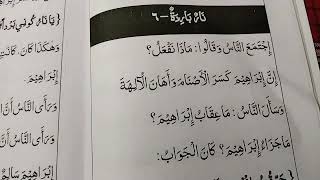 ٦- نَارٌ بَارِدَةٌ
اِجْتَمَعَ النَّاسُ وَقَالُوا: مَاذَا نَفْعَلُ؟
إِنَّ إِبْرَاهِيْمَ كَسَرَ الْأَصْنَامَ وَأَهَانَ الْآلِهَةَ
وَسَأَلَ النَّاسُ: مَا عِقَابُ إِبْرَاهِيْمَ؟
مَا جَزَاءُ إِبْرَاهِيْمَ؟ كَانَ الْجَوَابُ:
وَهٰكَذَا كَانَ، كَانَتِ
إِبْرَاهِيْمَ.
وَرَأَى النَّاسُ أَنَّ
وَرَأَى النَّاسُ أَنَّ
إِبْرَاهِيْمَ سَالِمٌ